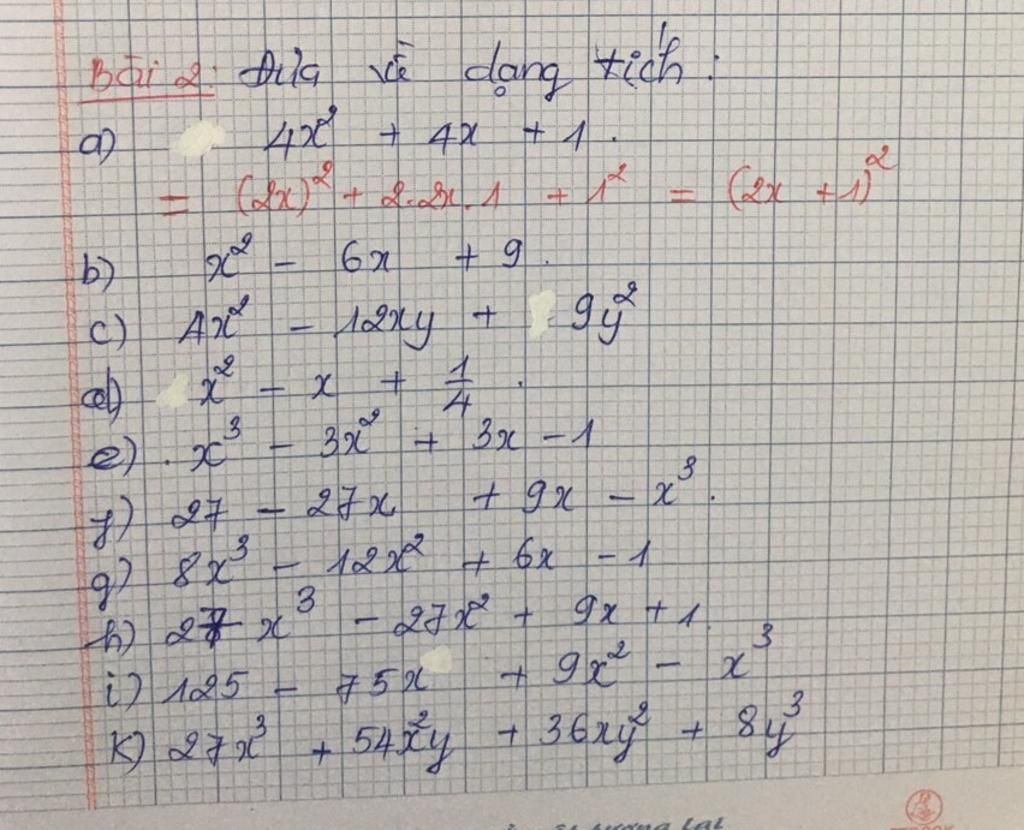 Bài 2: Đưa về dạng tích:
a) 4x² + 4x + 1.
= (2x)² + 2.2x.1 + 1² = (2x + 1)²
b) x² - 6x + 9.
c) 4x² - 12xy + 9y²
d) x² - x + 1/4.
e) x³ - 3x² + 3x - 1
f) 27 - 27x + 9x - x³.
g) 8x³ - 12x² + 6x - 1
h) 27x³ - 27x² + 9x + 1.
i) 125 - 75x + 9x² - x³
k) 27x³ + 54x²y + 36xy² + 8y³